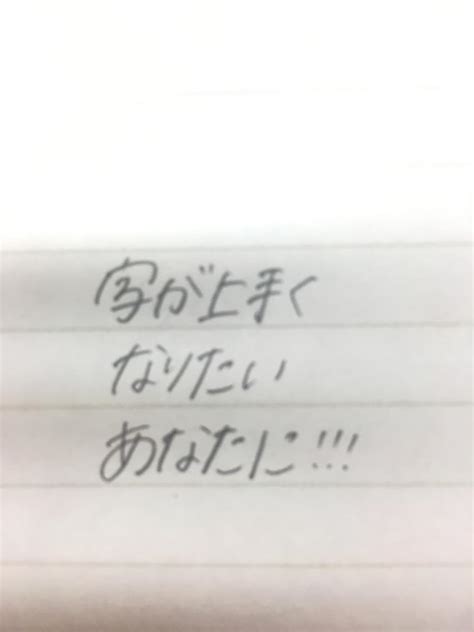 字が上手く
なりたい
あなたに!!!